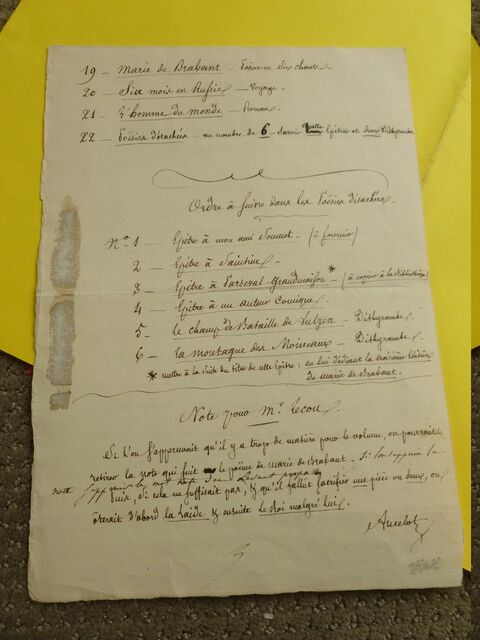 19 — Marie de Brabant — Poëme en Six chants.
20 — Six mois en Russie — Voyage.
21 — L'homme du monde — Roman.
22 — Poësies détachées — au nombre de 6 — Savoir quatre Epitres et deux Dithyrambes
Ordre à suivre dans les Poësies détachées.
Nº 1 — Epitre à mon ami Soumet. (à fournir)
2 — Epitre à Saintine —
3 — Epitre à Parseval-Grandmaison * — (à copier à la Bibliothèque)
4 — Epitre à un auteur Comique —
5 — Le champ de Bataille de Lutzen — Dithyrambe —
6 — La montagne des Moineaux — Dithyrambe —
* mettre à la Suite du titre de cette Epitre : en lui dédiant la troisième Edition
De Marie de Brabant.
Note pour Mr. Lecou.
Si l'on s'appercevait qu'il y a trop de matière pour le volume, on pourrait
retirer la note qui suit le poëme de marie de Brabant.
note
Puis, si cela ne suffisait pas, & qu'il fallut sacrifier une pièce ou deux, on
ôterait d'abord la Laide & ensuite Le Roi malgré lui.
Ancelot